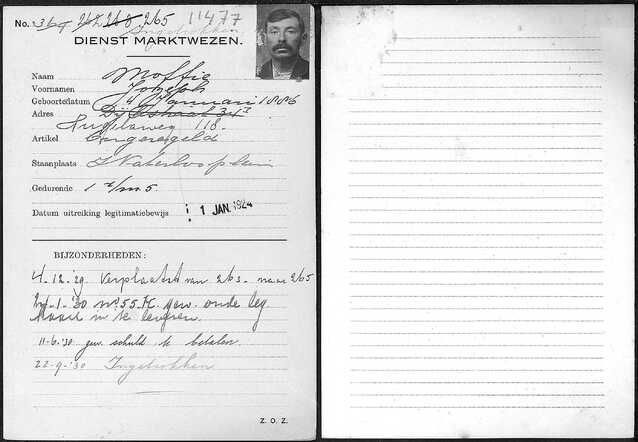 No. 369 262 263 265 11477
Ingetrokken
DIENST MARKTWEZEN.
Naam Moffie
Voornamen Joseph
Geboortedatum 4 Januari 1886
Adres
118.
Artikel Ongeregeld
Staanplaats Waterlooplein
Gedurende 1 t/m 5
Datum uitreiking legitimatiebewijs 1 JAN. 1924
BIJZONDERHEDEN:
4-12-29 Verplaatst van 263 naar 265
-1-'30 no 55 K. gew. oude leg.
kaart in te leveren.
11-6-'30 gew. schuld te betalen.
22-9-'30 Ingetrokken
Z. O. Z.